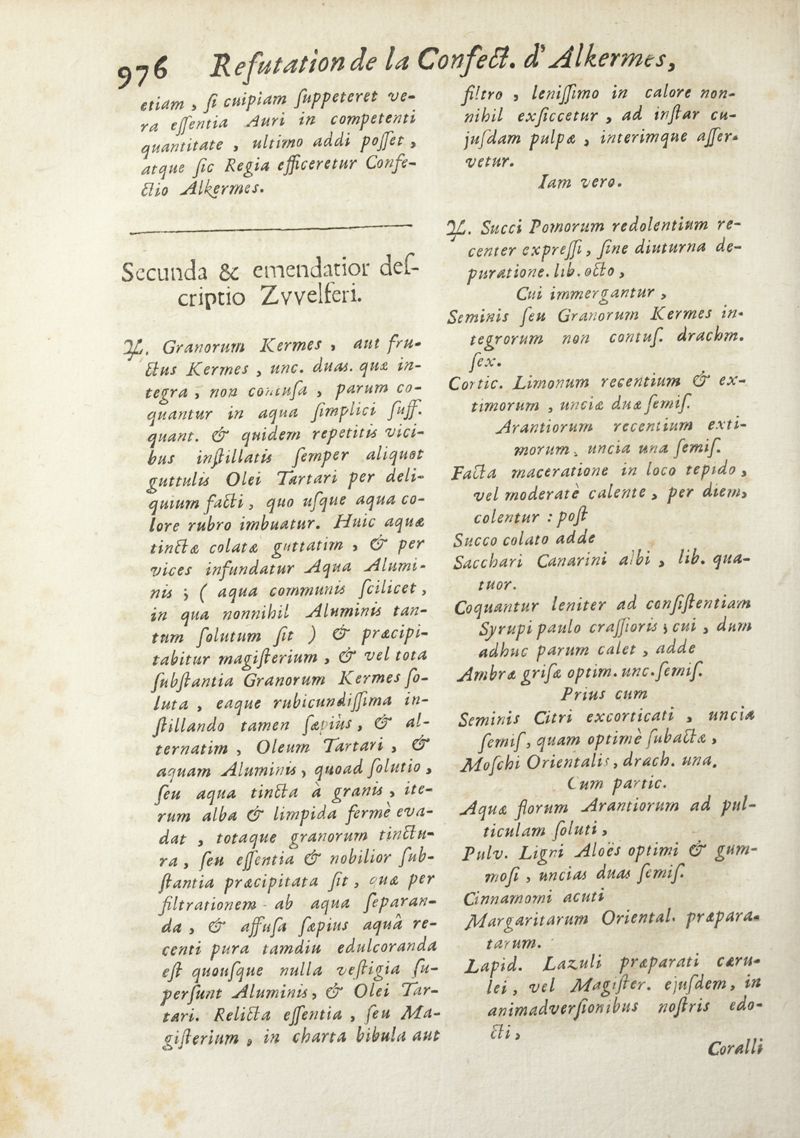 976 Refutation de la Confect. d'Alkermes,
etiam, ſi cuipiam ſuppeteret ve-
ra eſſentia Auri in competenti
quantitate, ultimo addi poſſet,
atque ſic Regia efficeretur Confe-
ctio Alkermes.
Secunda & emendatior deſ-
criptio Zvvelferi.
℞. Granorum Kermes, aut fru-
ctus Kermes, unc. duas. quæ in-
tegra, non contuſa, parum co-
quantur in aqua ſimplici ſuff.
quant. & quidem repetitis vici-
bus inſtillatis ſemper aliquot
guttulis Olei Tartari per deli-
quium facti, quo uſque aqua co-
lore rubro imbuatur. Huic aquæ
tinctæ colatæ guttatim, & per
vices infundatur Aqua Alumi-
nis; (aqua communis ſcilicet,
in qua nonnihil Aluminis tan-
tum ſolutum ſit) & præcipi-
tabitur magiſterium, & vel tota
ſubſtantia Granorum Kermes ſo-
luta, eaque rubicundiſſima in-
ſtillando tamen ſæpiùs, & al-
ternatim, Oleum Tartari, &
aquam Aluminis, quoad ſolutio,
ſeu aqua tincta à granis, ite-
rum alba & limpida fermè eva-
dat, totaque granorum tinctu-
ra, ſeu eſſentia & nobilior ſub-
ſtantia præcipitata ſit, quæ per
filtrationem ab aqua ſeparan-
da, & affuſa ſæpius aquâ re-
centi pura tamdiu edulcoranda
eſt quouſque nulla veſtigia ſu-
perſunt Aluminis, & Olei Tar-
tari. Relicta eſſentia, ſeu Ma-
giſterium, in charta bibula aut
filtro, leniſſimo in calore non-
nihil exſiccetur, ad inſtar cu-
juſdam pulpæ, interimque aſſer-
vetur.
Iam vero.
℞. Succi Pomorum redolentium re-
center expreſſi, ſine diuturna de-
puratione. lib. octo,
Cui immergantur,
Seminis ſeu Granorum Kermes in-
tegrorum non contuſ. drachm.
ſex.
Cortic. Limonum recentium & ex-
timorum, unciæ duæ ſemiſ.
Arantiorum recentium exti-
morum, uncia una ſemiſ.
Facta maceratione in loco tepido,
vel moderatè calente, per diem,
colentur: poſt
Succo colato adde
Sacchari Canarini albi, lib. qua-
tuor.
Coquantur leniter ad conſiſtentiam
Syrupi paulo craſſioris; cui, dum
adhuc parum calet, adde
Ambræ griſæ optim. unc. ſemiſ.
Prius cum
Seminis Citri excorticati, uncia
ſemiſ, quam optimè ſubactæ,
Moſchi Orientalis, drach. una.
Cum partic.
Aquæ florum Arantiorum ad pul-
ticulam ſoluti,
Pulv. Ligni Aloës optimi & gum-
moſi, uncias duas ſemiſ.
Cinnamomi acuti
Margaritarum Oriental. præpara-
tarum.
Lapid. Lazuli præparati cæru-
lei, vel Magiſter. ejuſdem, in
animadverſionibus noſtris edo-
cti,
Coralli